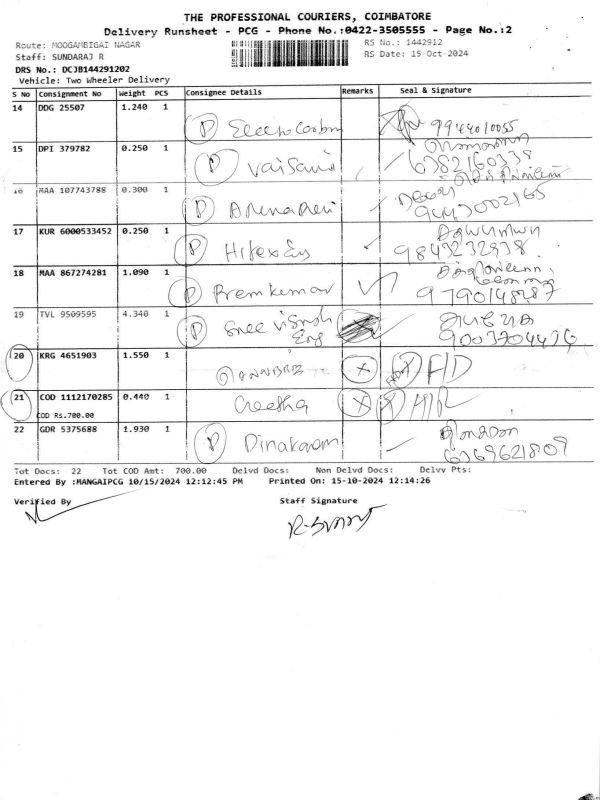 THE PROFESSIONAL COURIERS, COIMBATORE
Delivery Runsheet - PCG - Phone No.:0422-3505555 - Page No.:2
Route: MOOGAMBIGAI NAGAR RS No.: 1442912
Staff: SUNDARAJ R RS Date: 15-Oct-2024
DRS No.: DCJB144291202
Vehicle: Two Wheeler Delivery
S No Consignment No Weight PCS Consignee Details Remarks Seal & Signature
14 DDG 25507 1.240 1
P 9944010055
15 DPI 379782 0.250 1
P 6382160338
16 MAA 107743788 0.300 1
P 9443002165
17 KUR 6000533452 0.250 1
P Hitex Eng 9843232938
18 MAA 867274281 1.090 1
P Premkumar 9790148287
19 TVL 9509595 4.340 1
P Sree Eng
20 KRG 4651903 1.550 1
X
21 COD 1112170285 0.440 1
COD Rs.700.00
Geetha X
22 GDR 5375688 1.930 1
P Dinakaran
Tot Docs: 22 Tot COD Amt: 700.00 Delvd Docs: Non Delvd Docs: Delvv Pts:
Entered By :MANGAIPCG 10/15/2024 12:12:45 PM Printed On: 15-10-2024 12:14:26
Verified By Staff Signature